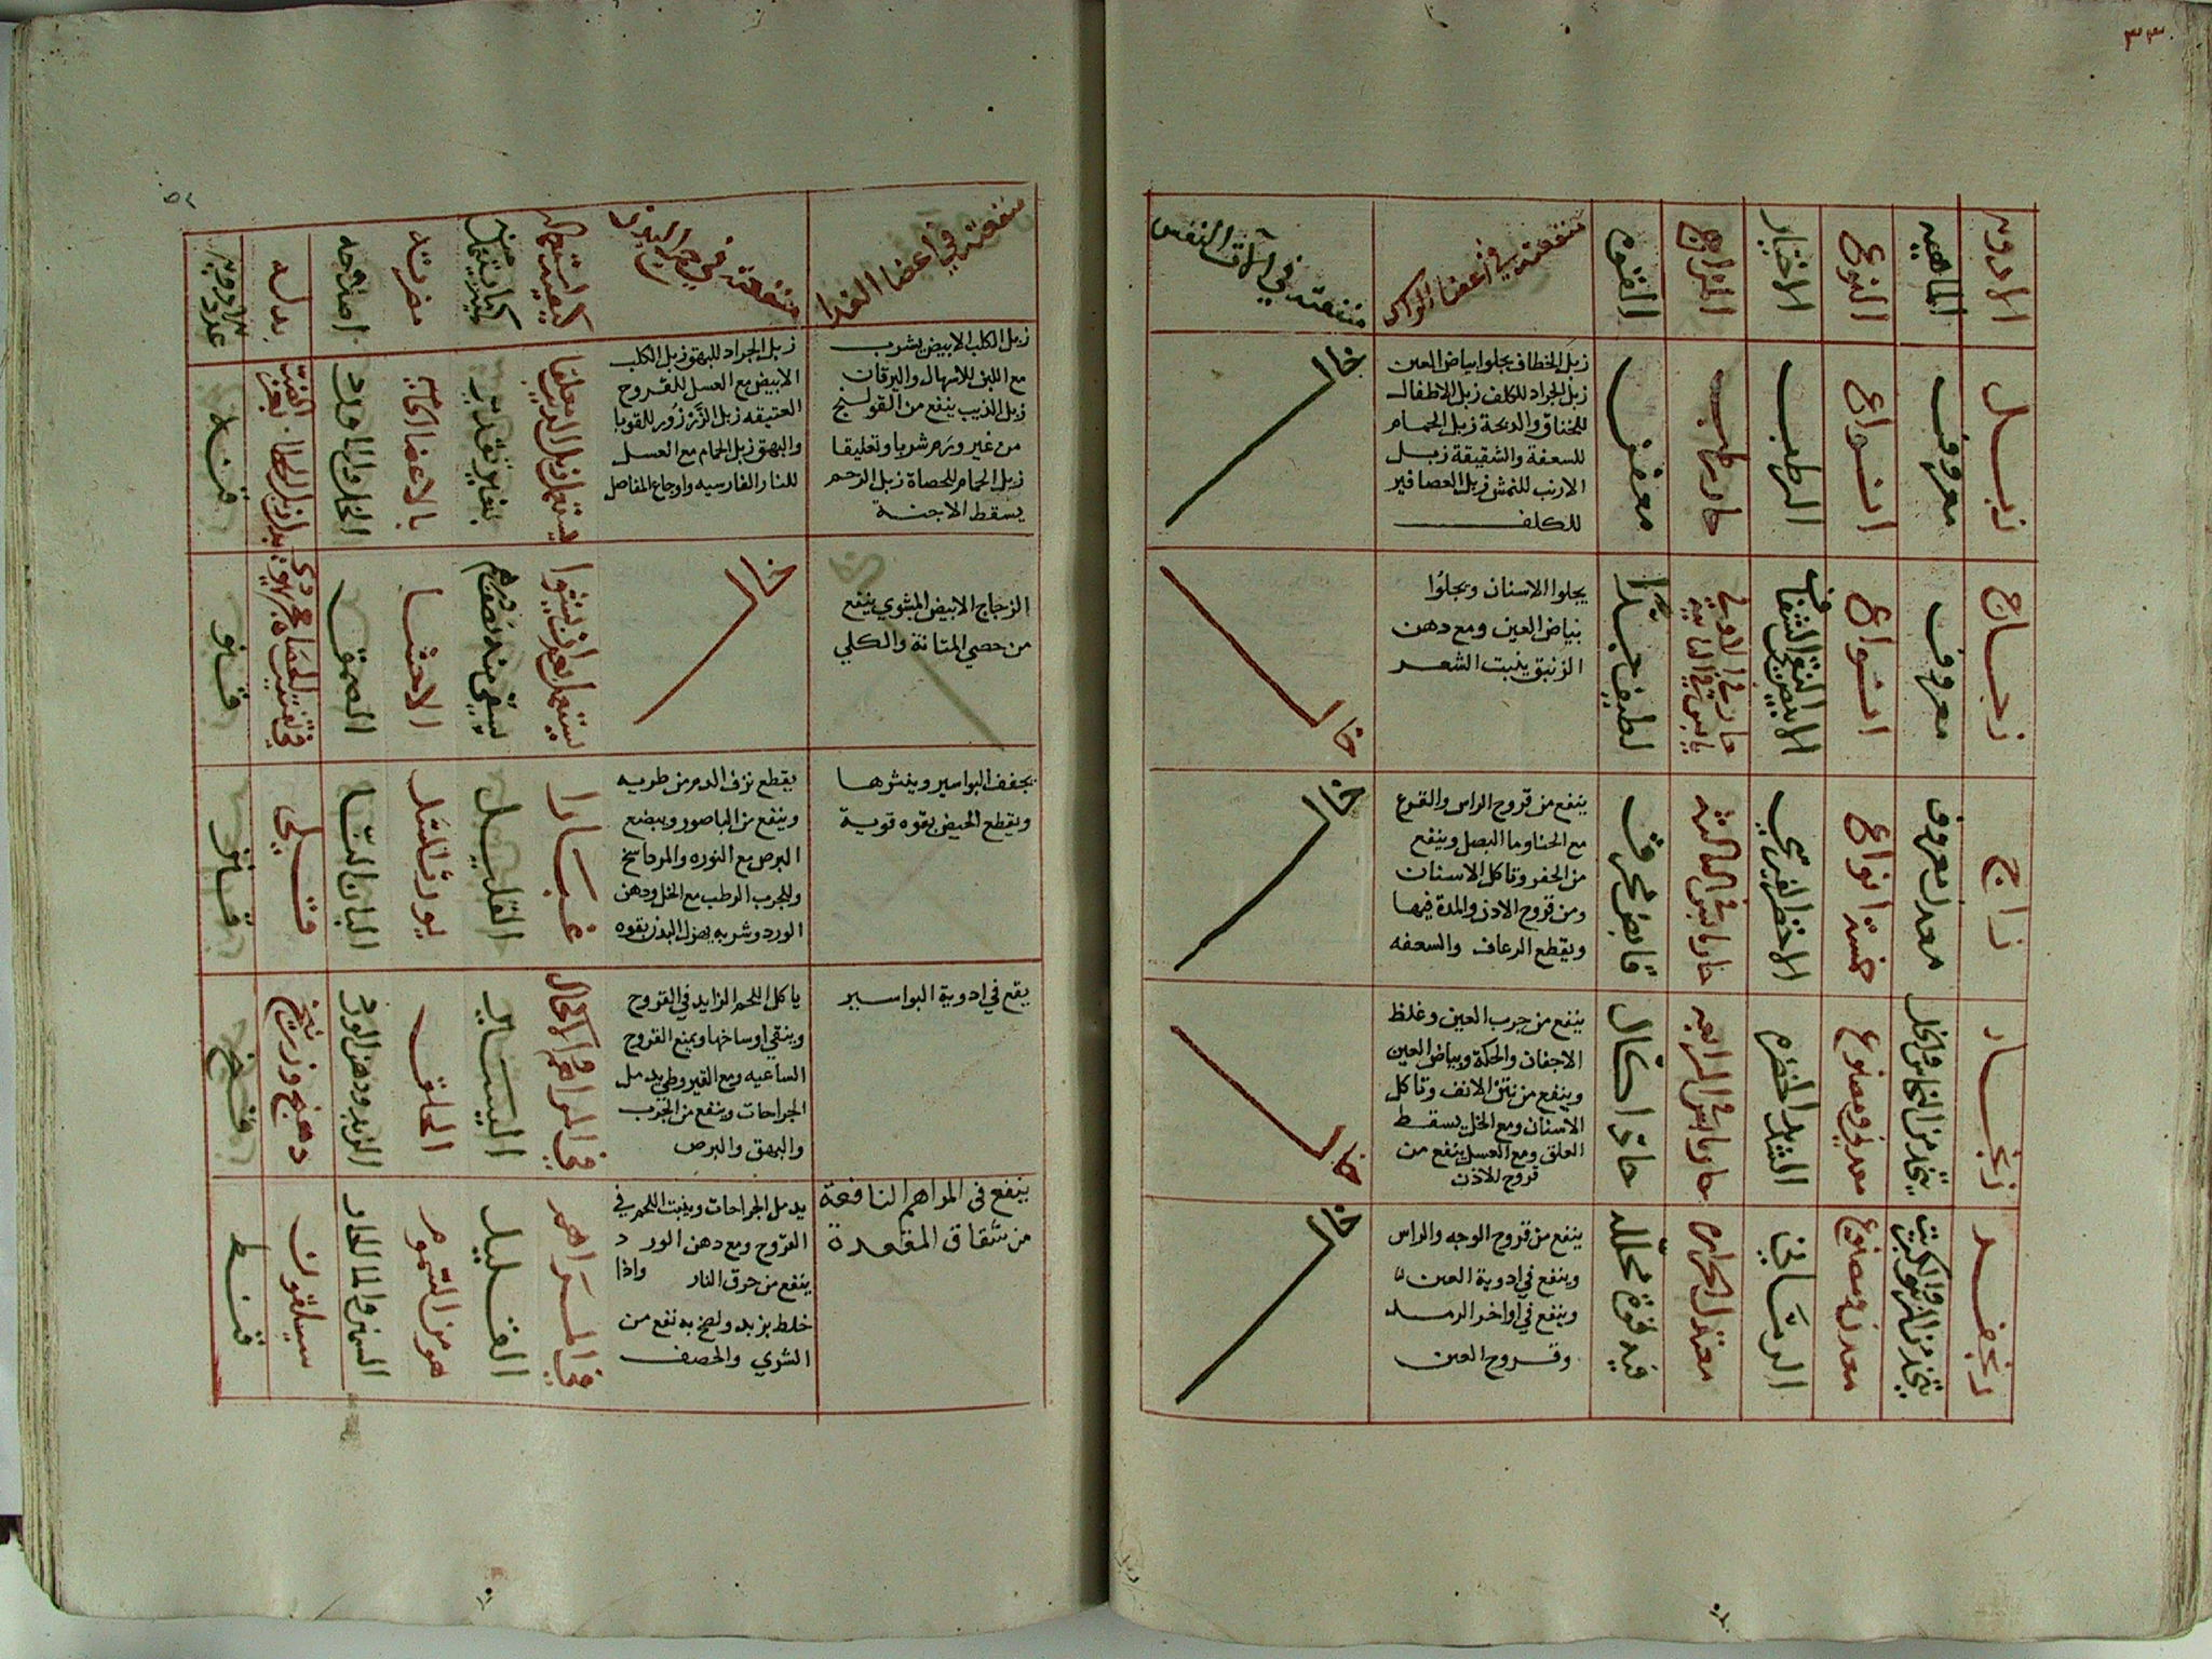 ٣٣
الادويه
الماهيه
النوع
الاختيار
المزاج
القوه
منفعته في اعضا الراس
منفعته في آلات النفس
زبل
معروف
انواع
الرطب
حار رطب
معفن
زبل الخطاف يجلوا بياض العين
زبل الجراد للكلف زبل الاطفال
للخناق والدبحة زبل الحمام
للسعفة والشقيقة زبل
الارنب للنمش زبل العصافير
للكلف
خال
زجاج
معروف
انواع
الابيض النقي الشفاف
حار في الاولى
يابس في الثانيه
لطيف جدًا
يجلوا الاسنان ويجلوا
بياض العين ومع دهن
الزنبق ينبت الشعر
خال
زاج
معدن معروف
خمسة انواع
الاخضر القبرسي
حار يابس في الثالثه
قابض محرق
ينفع من قروح الراس والقرع
مع الحنا وما البصل وينفع
من الحفر وتاكل الاسنان
ومن قروح الاذن والمدة فيها
ويقطع الرعاف والسعفه
خال
زنجار
يتخذ من النحاس والخل
معدني ومصنوع
الشديد الخضره
حار يابس في الرابعه
حاد اكال
ينفع من جرب العين وغلظ
الاجفان والحكة وبياض العين
وينفع من نتن الانف وتاكل
الاسنان ومع الخل يسقط
العلق ومع العسل ينفع من
قروح الاذن
خال
زنجفر
يتخذ من الزيبق والكبريت
معدن ومصنوع
الرماني
معتدل الحراره
فيه قوة محلله
ينفع من قروح الوجه والراس
وينفع في ادوية العين
وينفع في اواخر الرمد
وقروح العين
خال
منفعته في اعضا الغدا
منفعته في جميع البدن
كيفية استعماله
كمية ما يستعمل منه
مضرته
اصلاحه
بدله
عدد الادويه
زبل الكلب الابيض يشرب
مع اللبن للاسهال واليرقان
زبل الذيب ينفع من القولنج
من غير ورم شربا وتعليقا
زبل الحمام للحصاة زبل الرخم
يسقط الاجنة
زبل الجراد للبهق وزبل الكلب
الابيض مع العسل للقروح
العتيقه زبل الزرزور للقوبا
والبهق زبل الحمام مع العسل
للنار الفارسيه واوجاع المفاصل
يستعمل زبل الذيب معلقا
بغير تقدير
بالاعضا
الخل والماورد
الزجاج الابيض المشوي ينفع
من حصي المثانة والكلي
خال
الاحشا
الصمغ
يجفف البواسير وينثرها
ويقطع الحيض بقوه قوية
يقطع نزف الدم من طريه
وينفع من الباصور ويبضع
البرص مع النوره والمرداسنج
وللجرب الرطب مع الخل ودهن
الورد وشربه يهزل البدن بقوه
غبارا
القليل
يورث السل
البان النسا
يقع في ادوية البواسير
ياكل اللحم الزايد في القروح
وينقي اوساخها ويمنع القروح
الساعيه ومع القيروطي يدمل
الجراحات وينفع من الجرب
والبهق والبرص
في المراهم والاكحال
اليسير
الحلق
الزبد ودهن الورد
دهنج وزرنيخ
ينفع فى المراهم النافعة
من شقاق المقعدة
يدمل الجراحات وينبت اللحم في
القروح ومع دهن الورد
ينفع من حرق النار واذا
خلط بزبد ولطخ به نفع من
الشري والحصف
في المراهم
القليل
هو من السموم
السمن والما الحار
سيلقون